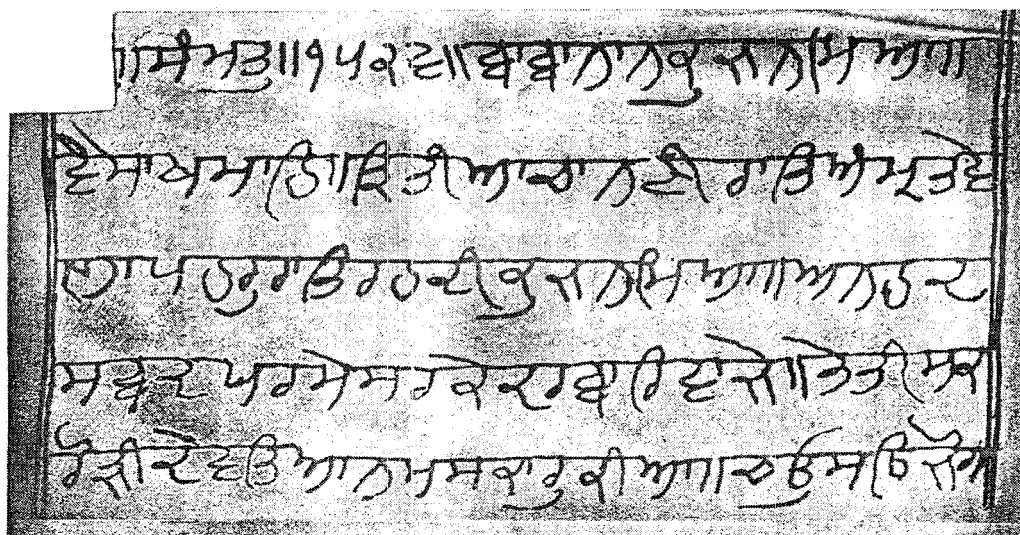 ॥ਸੰਮਤੁ॥੧੫੨੬॥ਬਾਬਾਨਾਨਕੁਜਨਮਿਆ॥
ਵੈਸਾਖਮਾਹਿ॥ਤ੍ਰਿਤੀਆਚਾਨਣੀਰਾਤਿਅੰਮ੍ਰਿਤਵੇ
ਲਾਪਹਰੁਰਾਤਿਰਹਦੀਕੁਜਨਮਿਆ॥ਅਨਹਦ
ਸਬਦਪਰਮੇਸਰਕੇਦਰਬਾਰਿਵਾਜੇ॥ਤੇਤੀਸਕ
ਰੋੜੀਦੇਵਤਿਆਨਮਸਕਾਰੁਕੀਆ॥ਚਉਸਠਿਜੋਗ